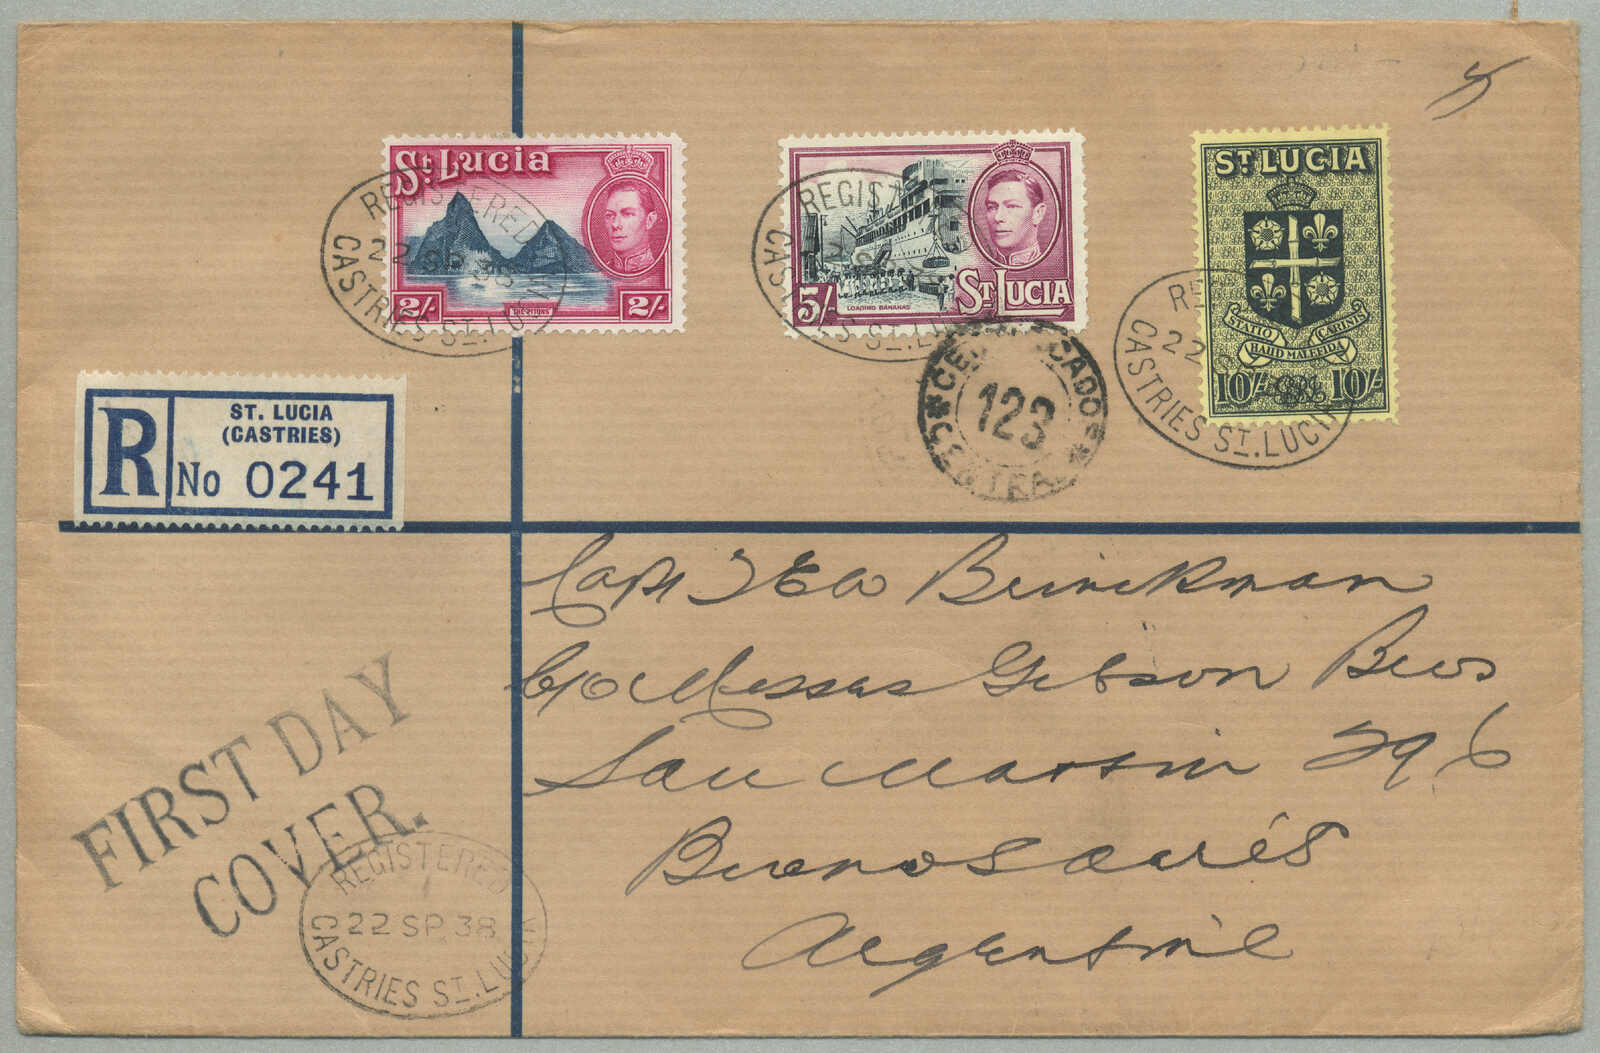 St. Lucia
2/- 2/-
THE PITONS
REGISTERED
22 SP 38
CASTRIES ST. LUCIA
5/-
LOADING BANANAS
ST LUCIA
REGISTERED
CASTRIES ST. LUCIA
ST. LUCIA
STATIO HAUD MALEFIDA CARINIS
10/- 10/-
22
CASTRIES ST. LUCIA
CERTIFICADOS
123
CENTRAL
R
ST. LUCIA
(CASTRIES)
No 0241
Capt T E W Brinckman
C/o Messrs Gibson Bros
San Martin 296
Buenos Aires
Argentine
FIRST DAY
COVER.
REGISTERED
22 SP 38
CASTRIES ST. LUCIA